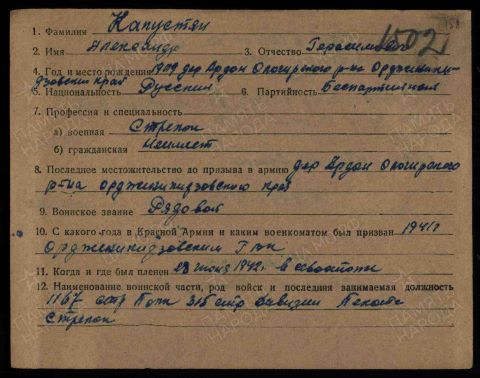 1502
1. Фамилия Капустян
2. Имя Александр 3. Отчество Герасимович
4. Год и место рождения 1909 дер Ардон Алагирского р-на Орджоники-
дзовский край
5. Национальность Русский 6. Партийность беспартийный
7. Профессия и специальность
а) военная Стрелок
б) гражданская
8. Последнее местожительство до призыва в армию дер Ардон
р-на орджоникидзовского край
9. Воинское звание Рядовой
10. С какого года в Красной Армии и каким военкоматом был призван 1941г
Орджоникидзовским Г
11. Когда и где был пленен 1942г. в севостополи
12. Наименование воинской части, род войск и последняя занимаемая должность
1167 стр Полк 345 стр дивизии
Стрелок
ПАМЯТЬ НАРОДА